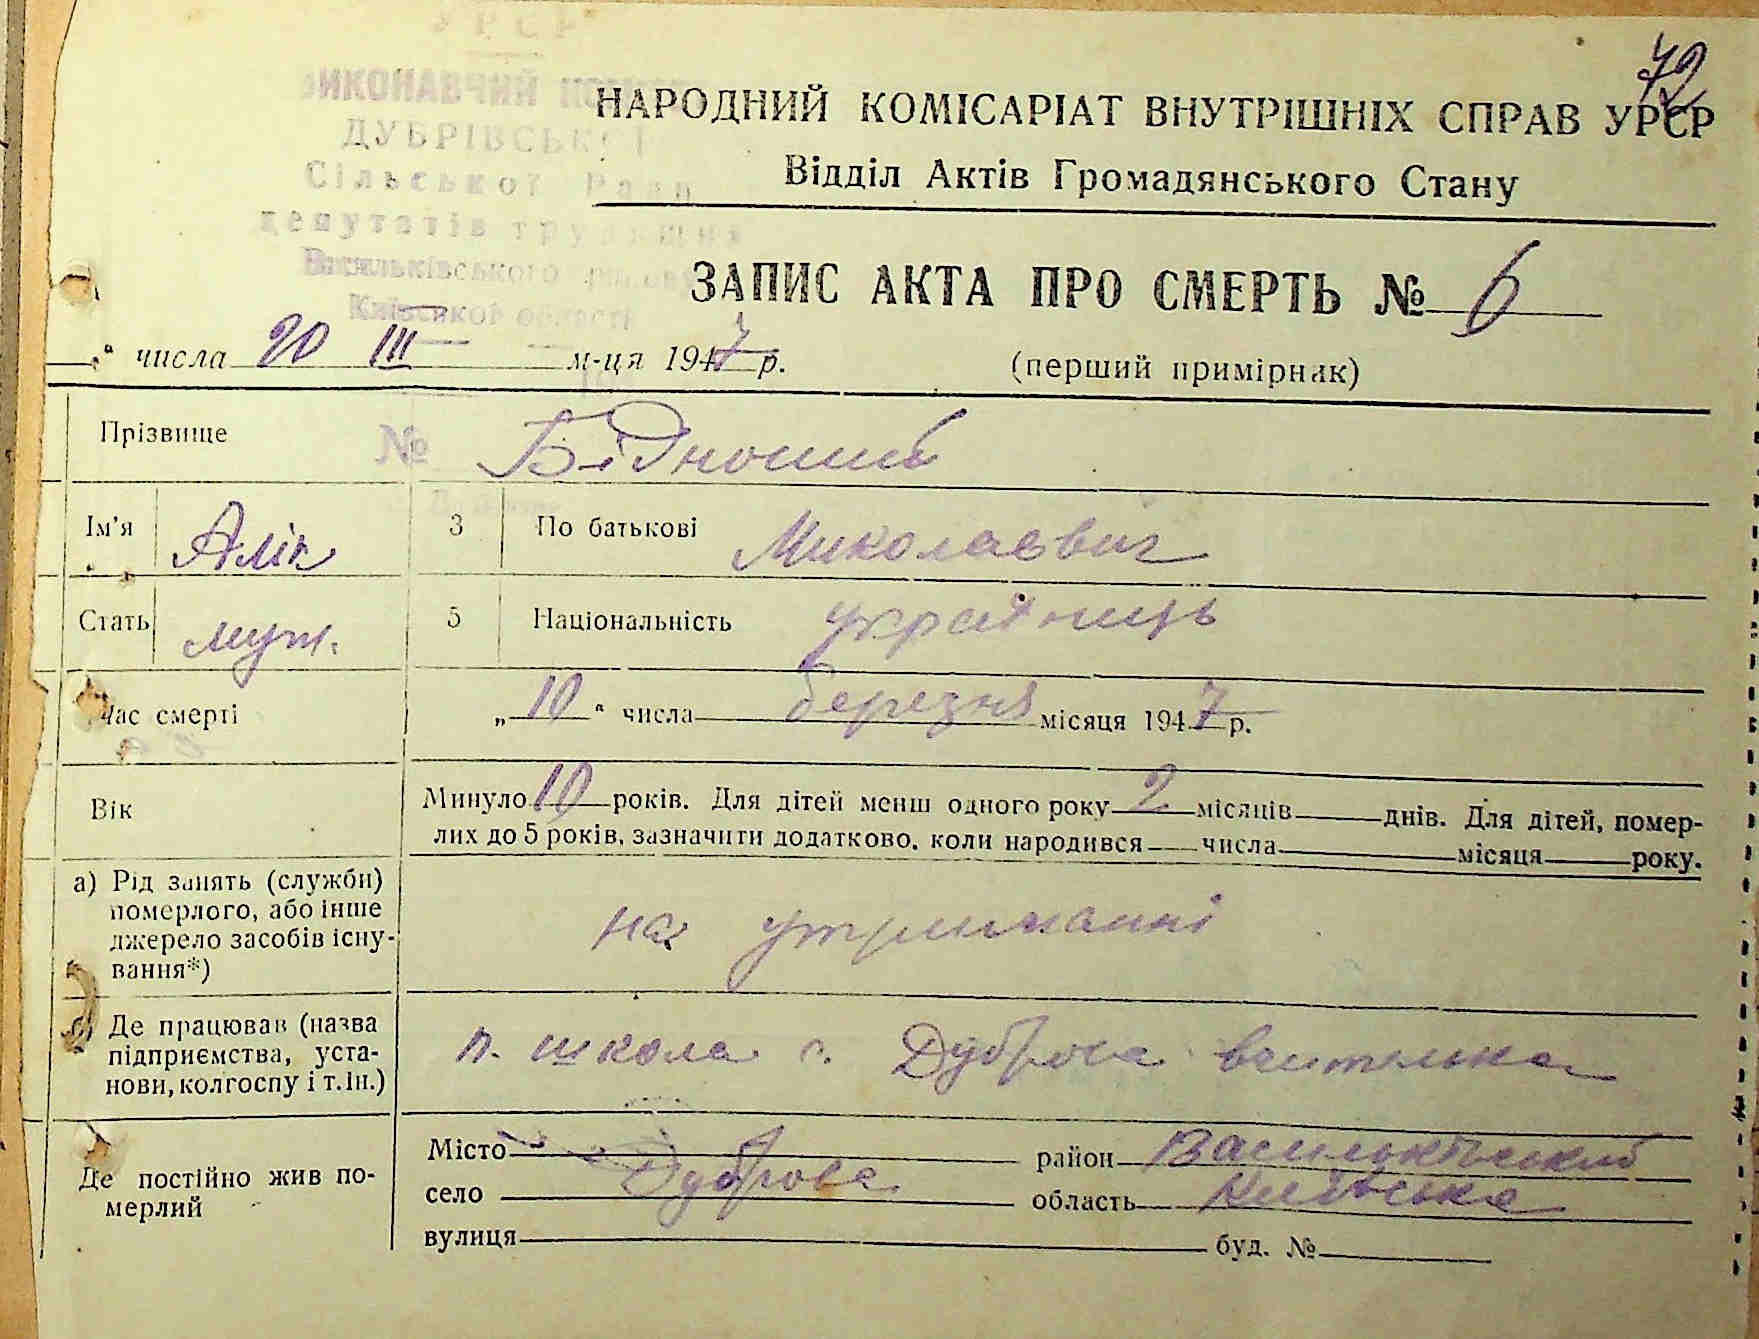 72
УРСР
ВИКОНАВЧИЙ
НАРОДНИЙ КОМІСАРІАТ ВНУТРІШНІХ СПРАВ УРСР
ДУБРІВСЬКОЇ
Відділ Актів Громадянського Стану
Сільської Ради
депутатів трудящих
Васильківського району
Київської області
ЗАПИС АКТА ПРО СМЕРТЬ № 6
" числа 20 III м-ця 1947 р. (перший примірник)
Прізвище № Бідноший
Ім'я Алік 3 По батькові Миколаєвич
Стать муж. 5 Національність українець
Час смерті „10" числа березня місяця 1947 р.
Вік Минуло 10 років. Для дітей менш одного року 2 місяців днів. Для дітей, помер-
лих до 5 років, зазначити додатково, коли народився числа місяця року.
а) Рід занять (служби)
померлого, або інше
джерело засобів існу-
вання*) на утриманні
б) Де працював (назва
підприємства, уста-
нови, колгоспу і т.ін.) п. школа с. Дуброва вчителька
Де постійно жив по-
мерлий
Місто район Васильківський
село Дуброва область Київська
вулиця буд. №